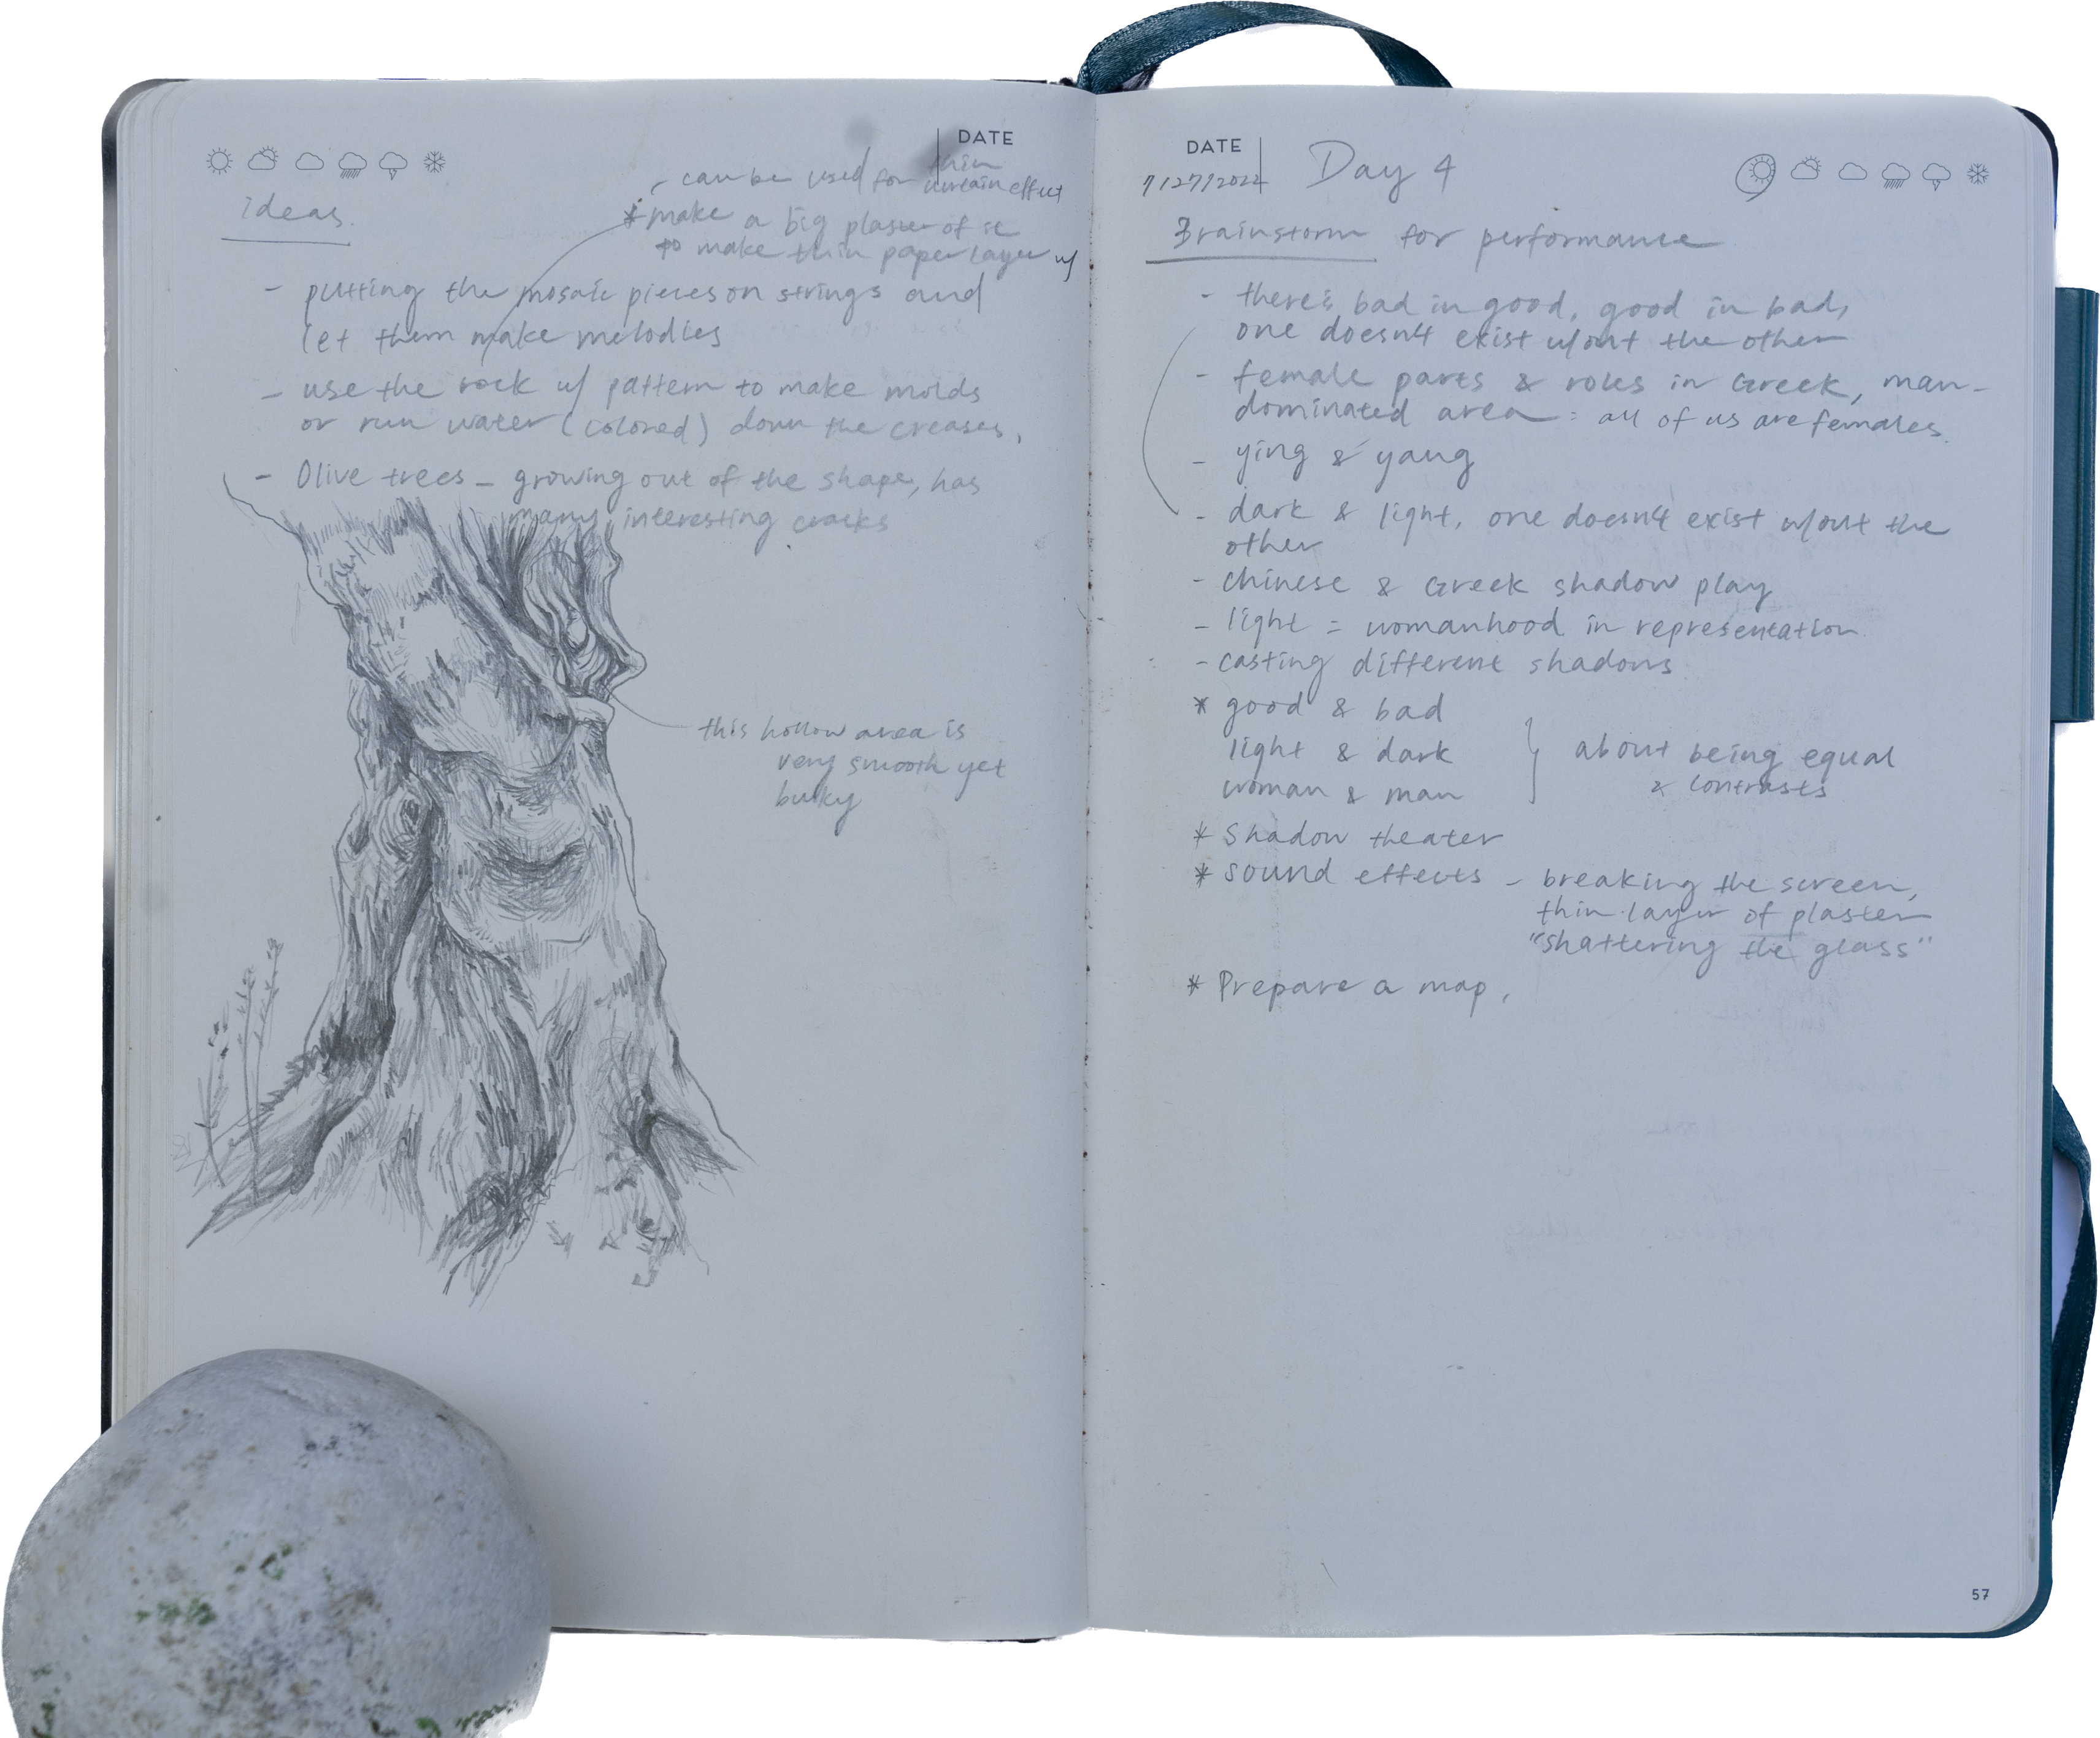 DATE
ideas
- can be used for thin
curtain effect
* make a big plaster of it
to make thin paper layer w/
- putting the mosaic pieces on strings and
let them make melodies
- use the rock w/ pattern to make molds
or run water (colored) down the creases,
- Olive trees - growing out of the shape, has
many interesting cracks
this hollow area is
very smooth yet
bulky
DATE
7/27/2022
Day 4
Brainstorm for performance
- there's bad in good, good in bad,
one doesn't exist w/out the other
- female parts & roles in Greek, man-
dominated area : all of us are females.
- ying & yang
- dark & light, one doesn't exist w/out the
other
- chinese & Greek shadow play
- light = womanhood in representation
- casting different shadows
* good & bad
light & dark
woman & man
} about being equal
& contrasts
* Shadow theater
* Sound effects - breaking the screen,
thin layer of plaster
"shattering the glass"
* Prepare a map.
57